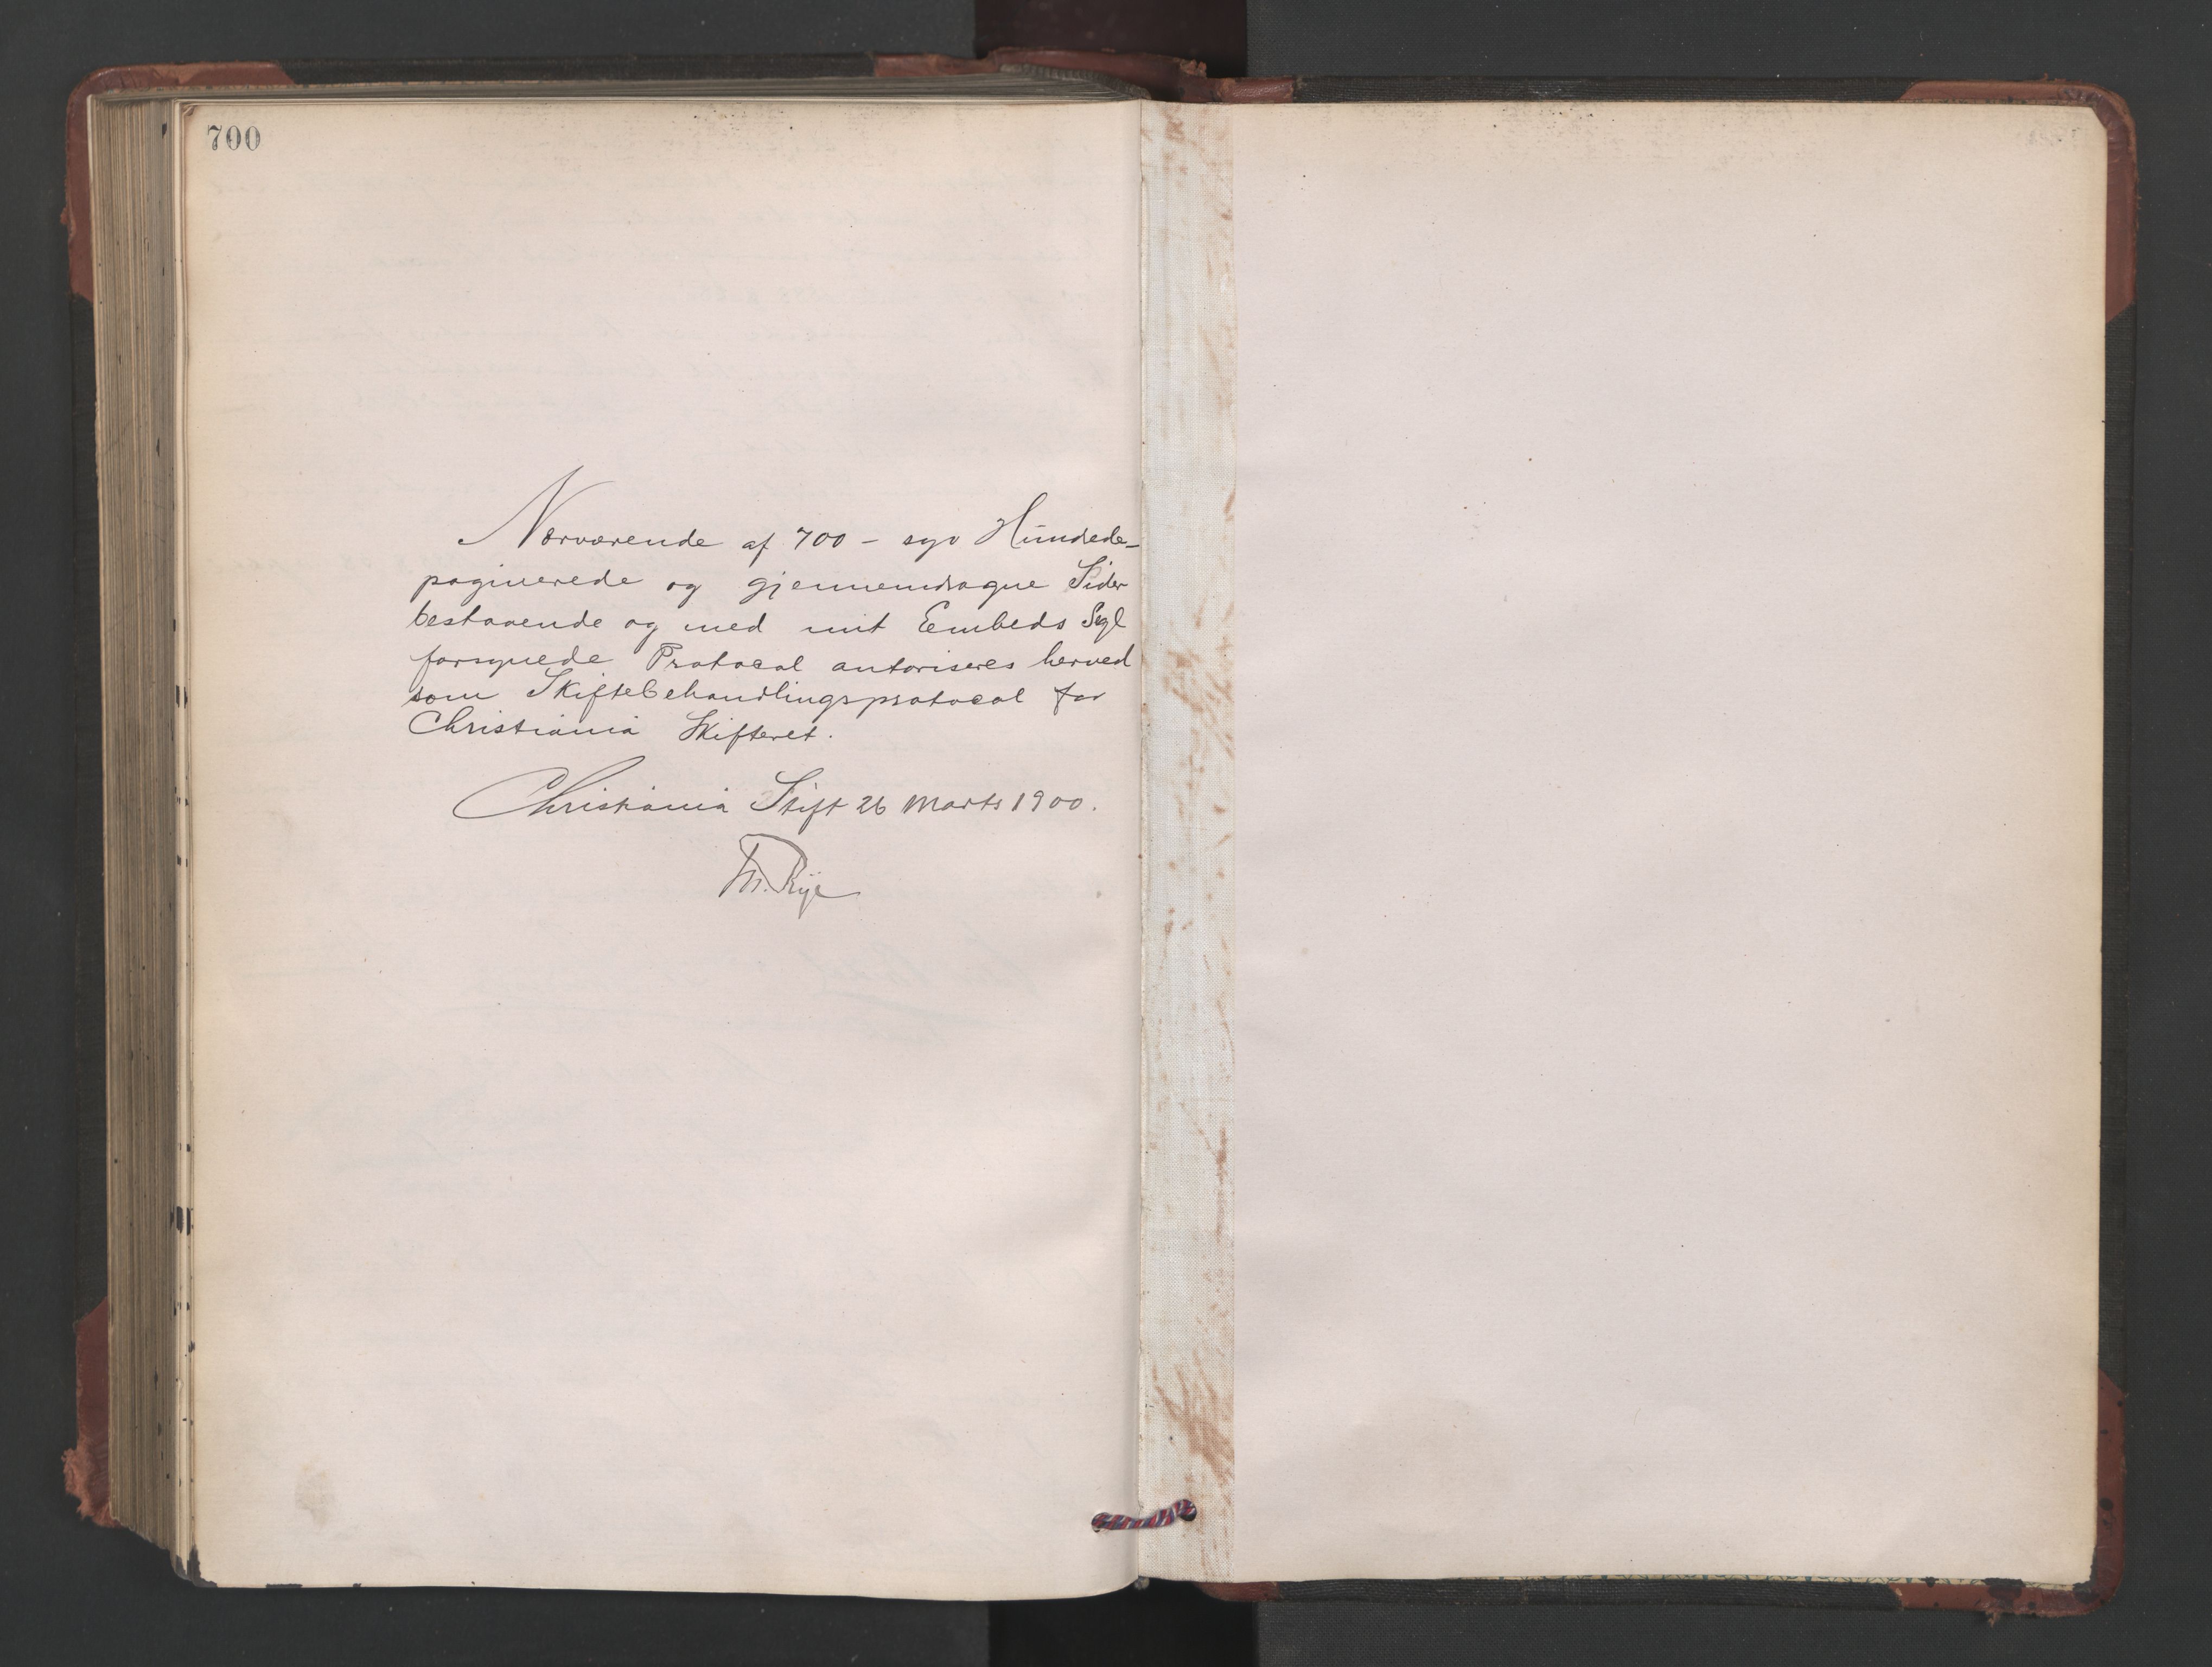 700
Nærværende af 700 – syv Hundrede –
paginerede og gjennemdragne Sider
bestaaende og med mit Embeds Segl
forsynede Protocol autoriseres herved
som Skiftebehandlingsprotocol for
Christiania Skifteret.
Christiania Stift 26 Marts 1900.
Th. Rye